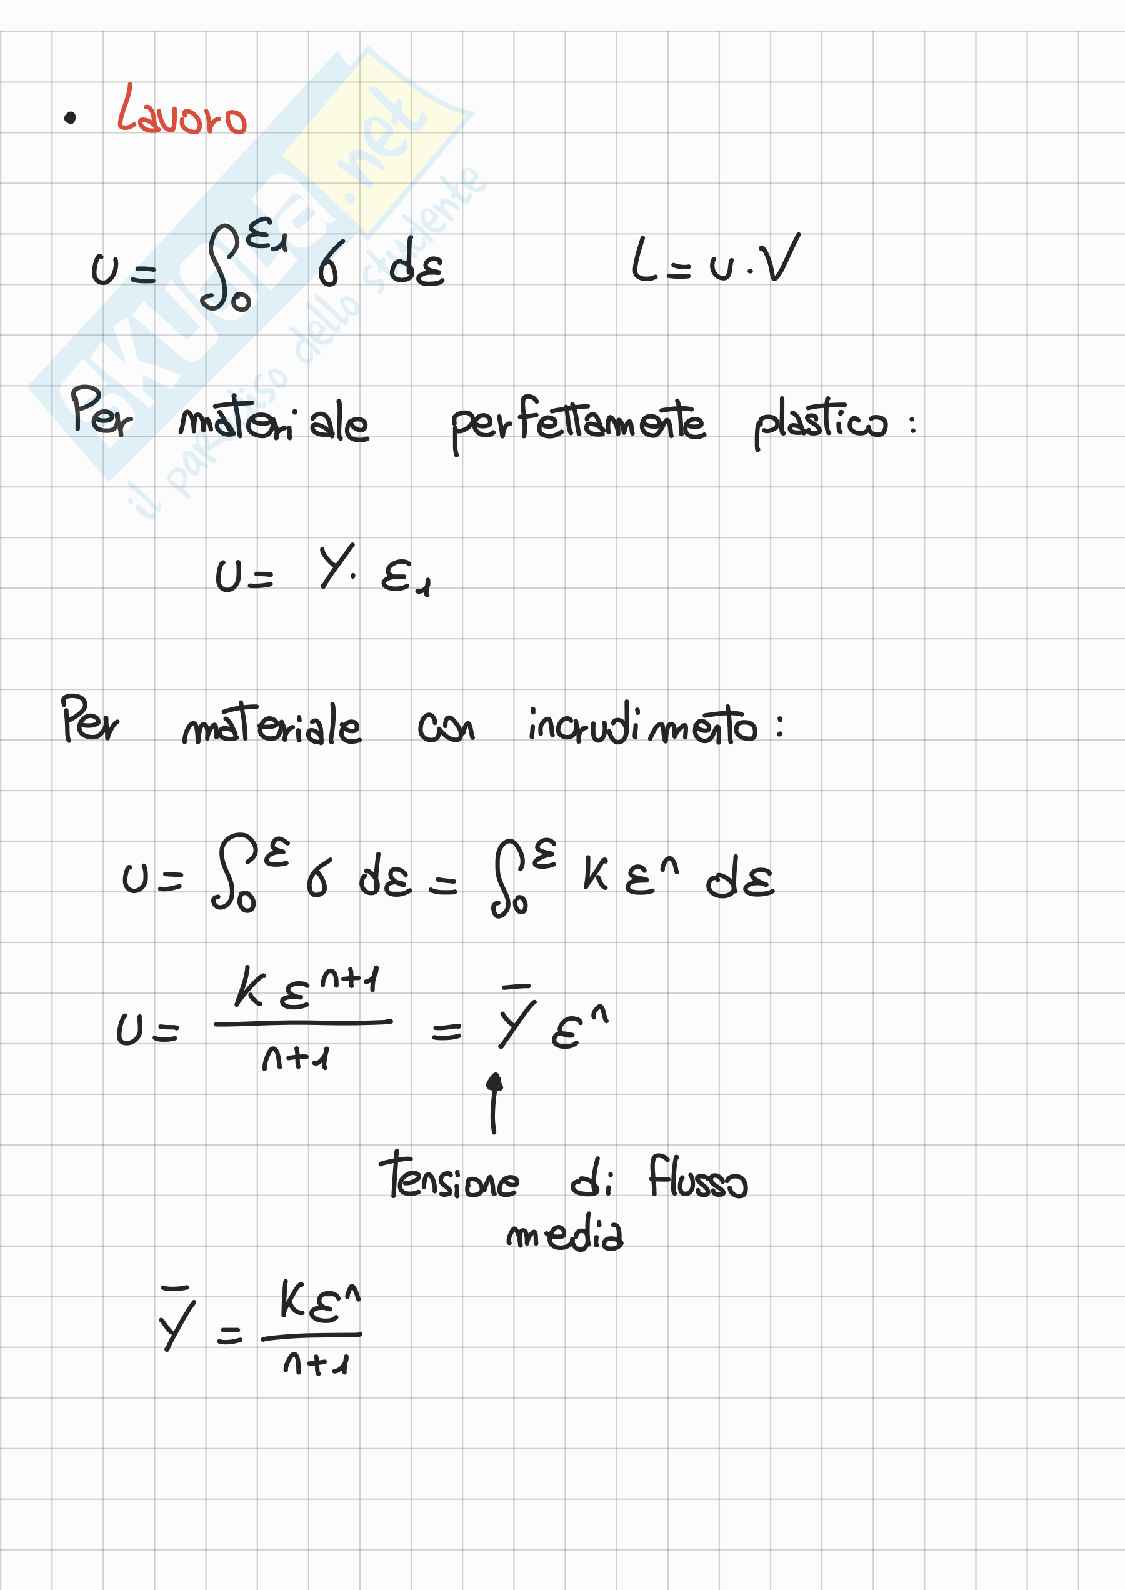 • Lavoro
u = ∫₀^ε₁ σ dε    L = u · V
Per materiale perfettamente plastico :
u = Y · ε₁
Per materiale con incrudimento :
u = ∫₀^ε σ dε = ∫₀^ε K εⁿ dε
u = K εⁿ⁺¹ / n+1 = Ȳ εⁿ
↑
tensione di flusso
media
Ȳ = K εⁿ / n+1
SKUOLA.net
il paradiso dello studente